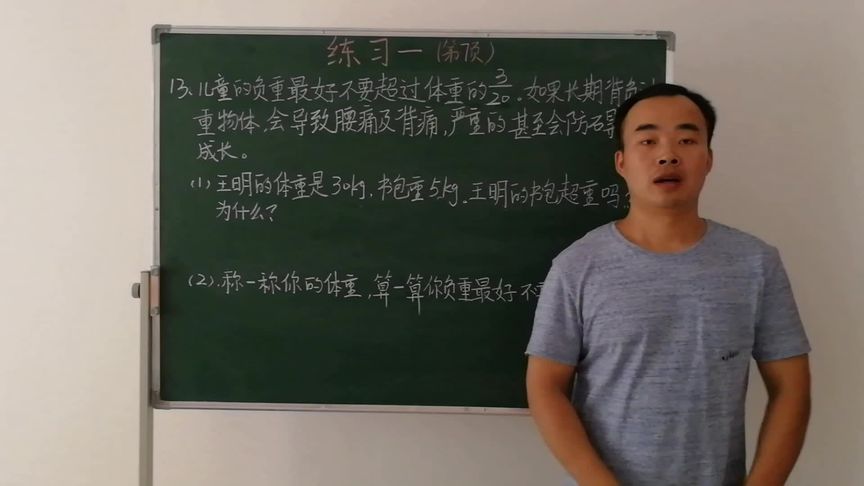 练习一(第7页)
13、儿童的负重最好不要超过体重的3/20。如果长期背
重物体,会导致腰痛及背痛,严重的甚至会防碍
成长。
(1)王明的体重是30kg,书包重5kg。王明的书包超重吗?
为什么?
(2).称一称你的体重,算一算你负重最好不